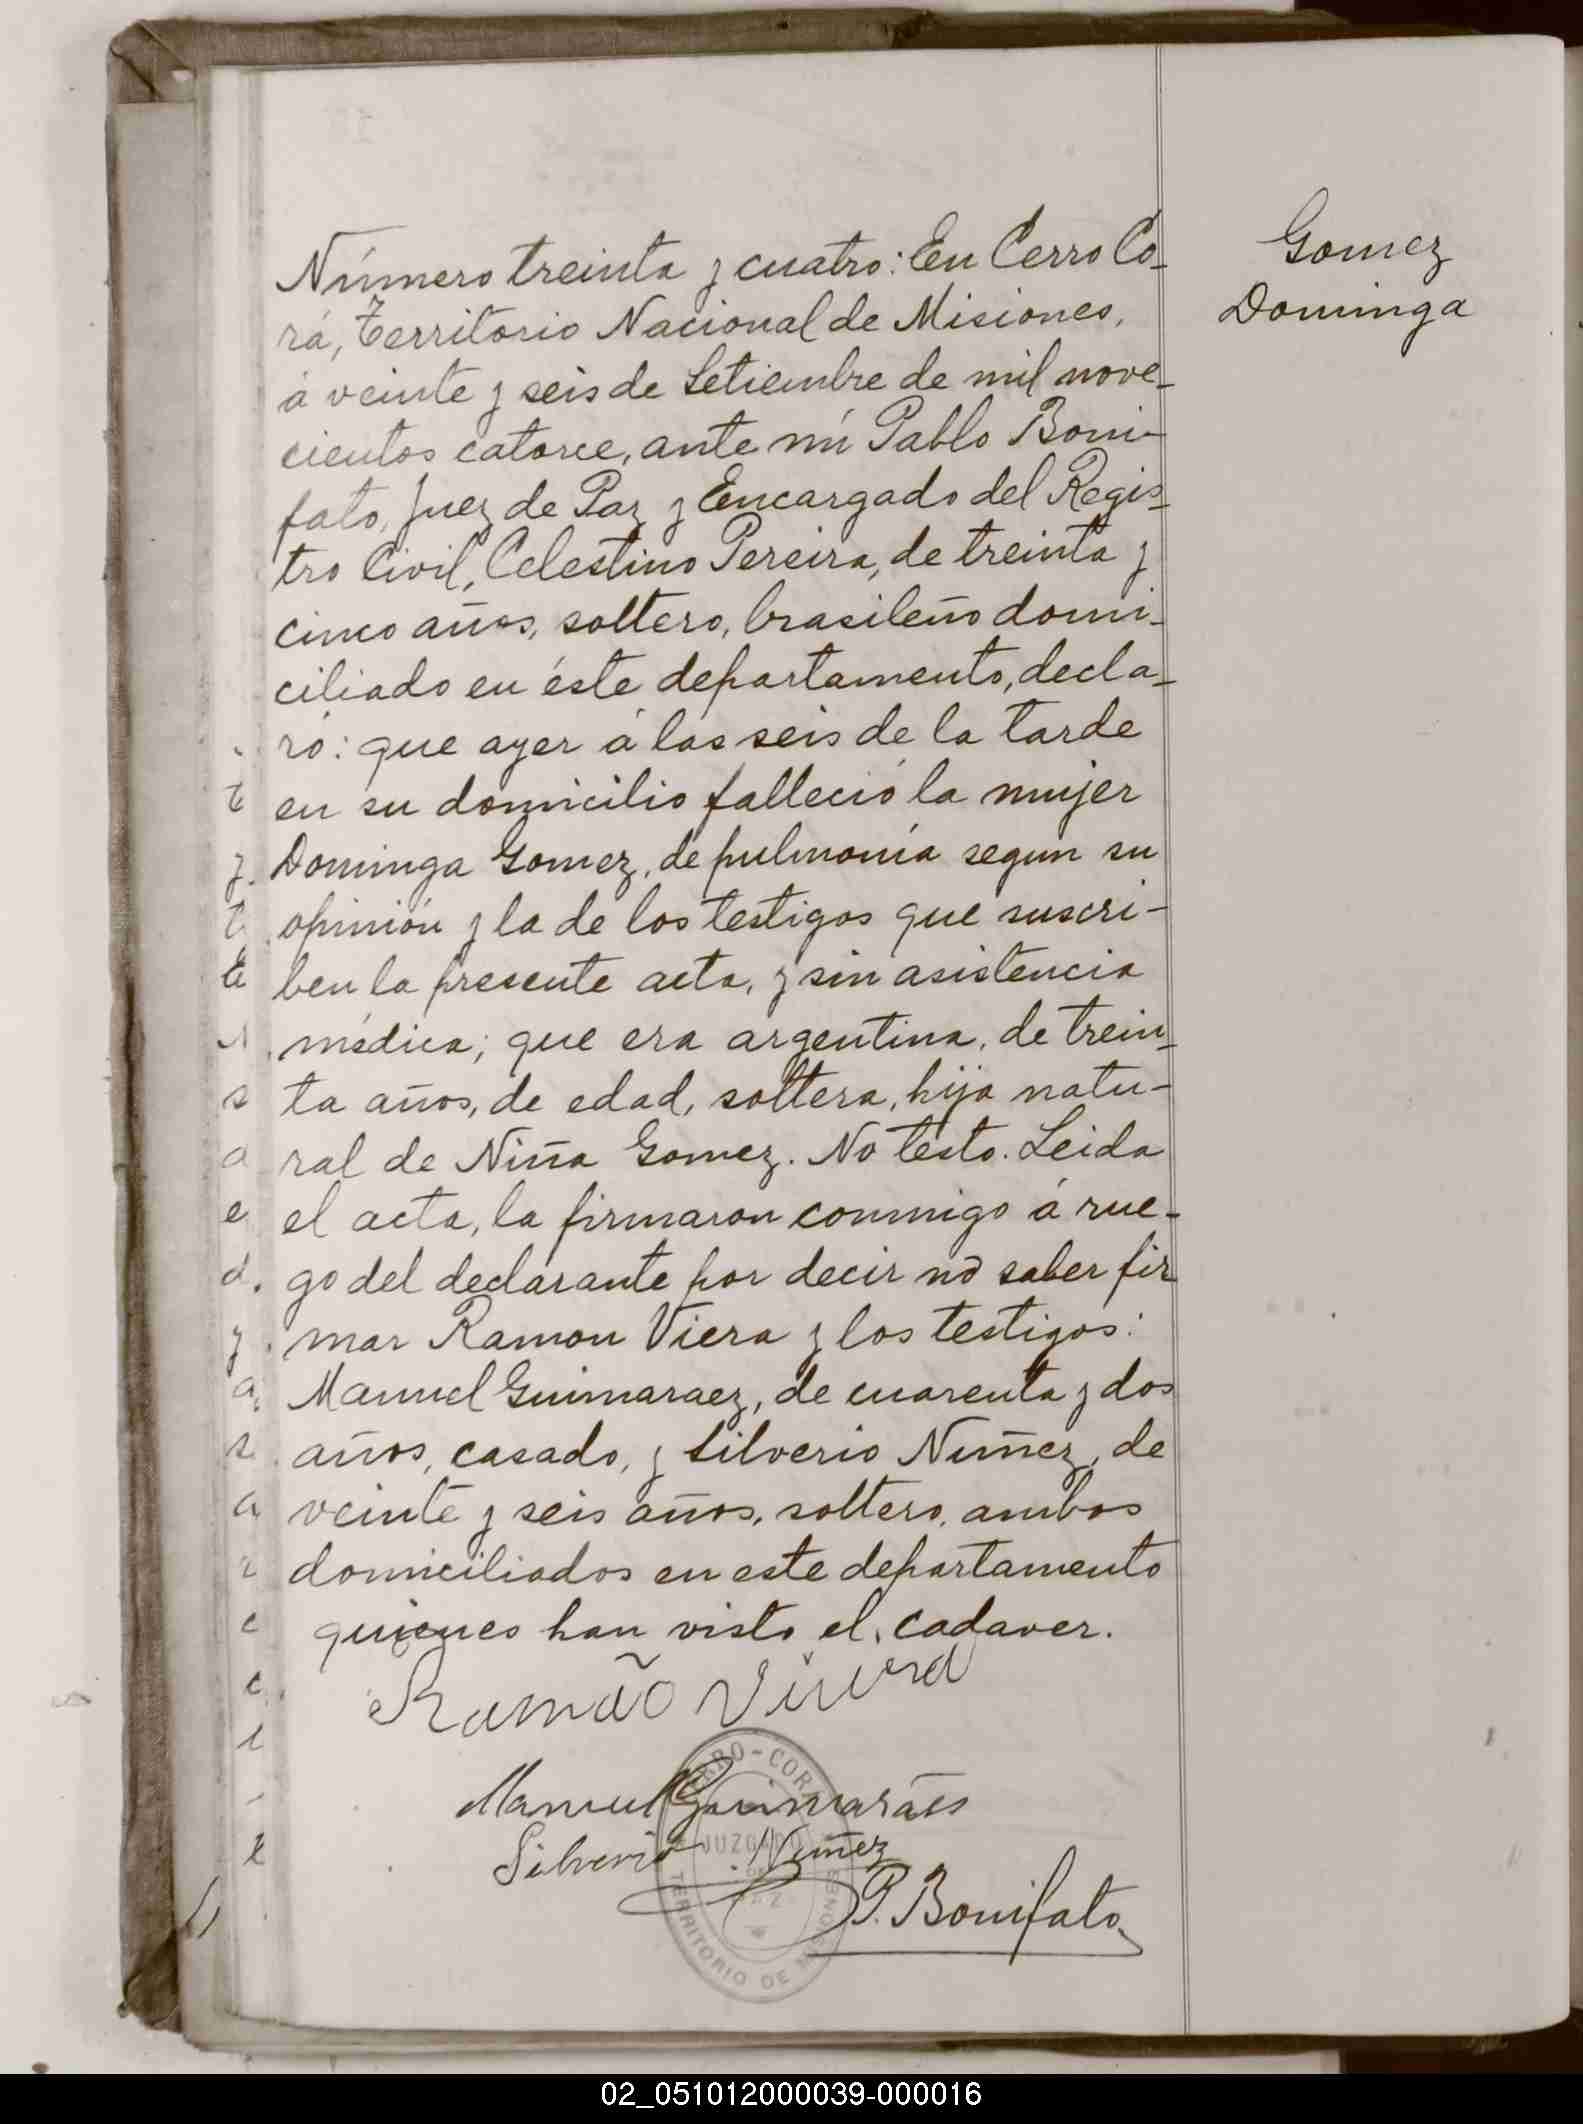 Número treinta y cuatro: En Cerro Co-
rá, Territorio Nacional de Misiones,
á veinte y seis de Setiembre de mil nove-
cientos catorce, ante mí Pablo Boni-
fato, Juez de Paz y Encargado del Regis-
tro Civil, Celestino Pereira, de treinta y
cinco años, soltero, brasileño domi-
ciliado en éste departamento, decla-
ró: que ayer á las seis de la tarde
en su domicilio falleció la mujer
Dominga Gomez, de pulmonía segun su
opinión y la de los testigos que suscri-
ben la presente acta, y sin asistencia
médica; que era argentina, de trein-
ta años, de edad, soltera, hija natu-
ral de Niña Gomez. No testo. Leida
el acta, la firmaron conmigo á rue-
go del declarante por decir no saber fir
mar Ramon Viera y los testigos:
Manuel Guimaraez, de cuarenta y dos
años, casado, y Silverio Nuñez, de
veinte y seis años, soltero, ambos
domiciliados en este departamento
quienes han visto el cadaver.
Ramão Vieira
Manuel Guimarães
Silverio Nuñez
P. Bonifato
CERRO-CORÁ
JUZGADO
DE
PAZ
TERRITORIO DE MISIONES
Gomez
Dominga
02_051012000039-000016